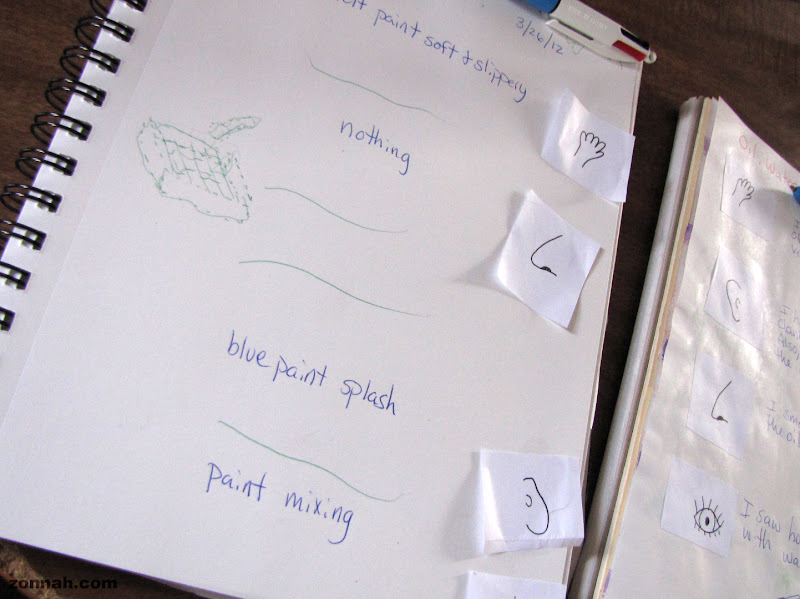 paint soft & slippery
3/26/12
nothing
blue paint splash
paint mixing
I
I sm
the oi
I saw
with wa
zonnah.com